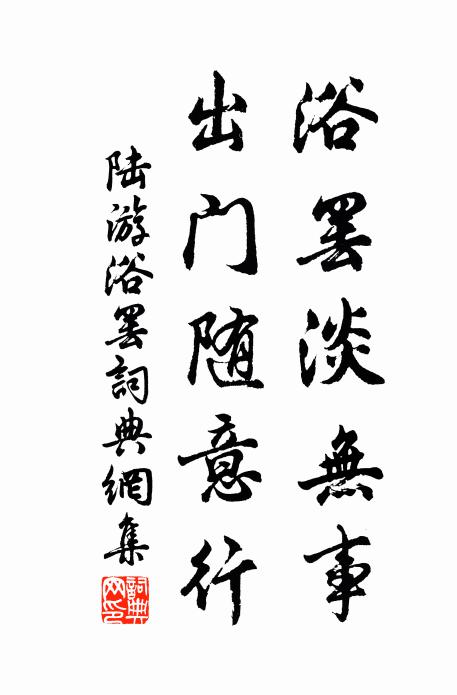 浴罢淡無事
出门随意行
陆游浴罢詞典網集
詞典网印